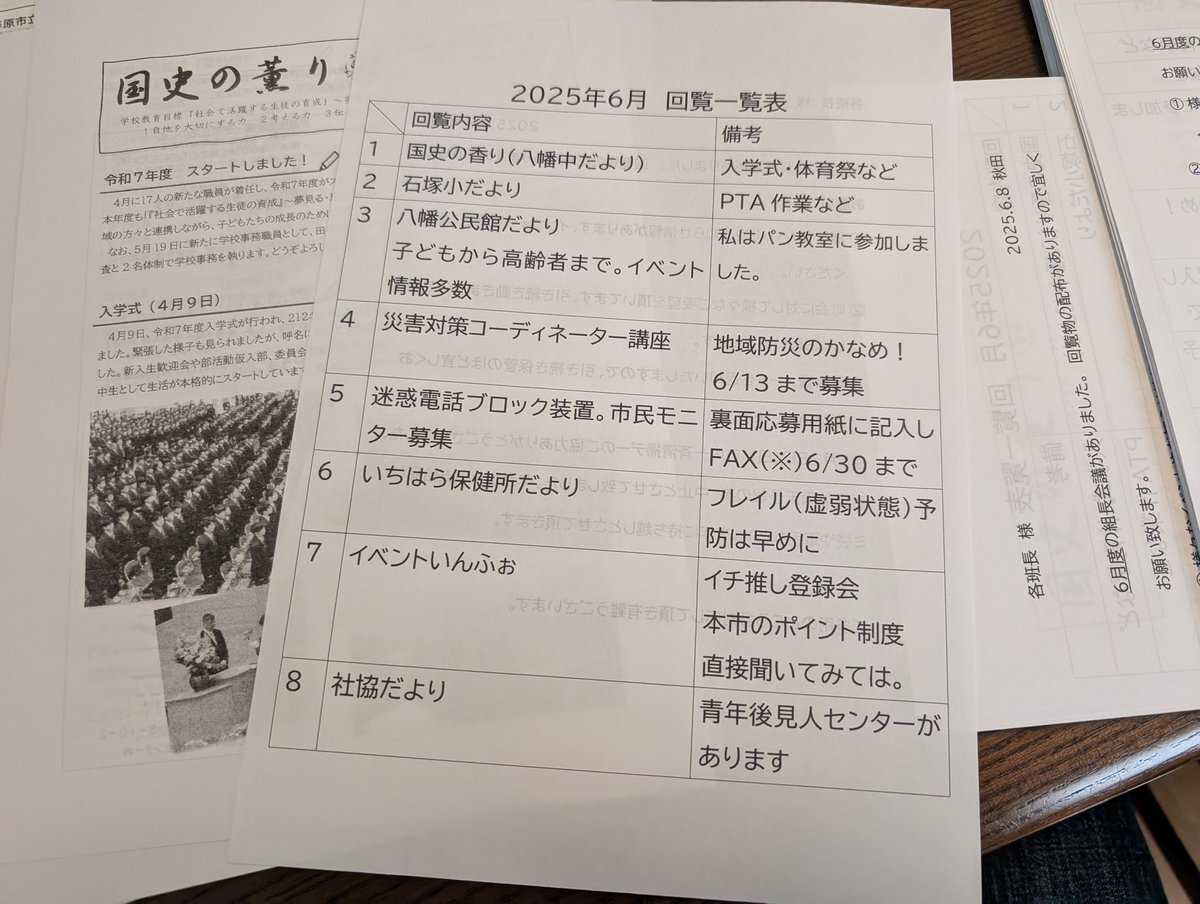 国史の薫り
学校教育目標「社会で活躍する生徒の育成」～
1自他を大切にする力 2考える力 3
令和7年度 スタートしました！
4月に17人の新たな職員が着任し、令和7年度が
本年度も『社会で活躍する生徒の育成』～夢見る・
域の方々と連携しながら、子どもたちの成長のため
なお、5月19日に新たに学校事務職員として、田
査と2名体制で学校事務を執ります。どうぞよろし
入学式（4月9日）
4月9日、令和7年度入学式が行われ、212
ました。緊張した様子も見られましたが、呼名に
した。新入生歓迎会や部活動仮入部、委員会
中生として生活が本格的にスタートしています
2025年6月 回覧一覧表
回覧内容 備考
1 国史の香り(八幡中だより) 入学式・体育祭など
2 石塚小だより PTA作業など
3 八幡公民館だより 私はパン教室に参加しま
子どもから高齢者まで。イベント した。
情報多数
4 災害対策コーディネーター講座 地域防災のかなめ！
6/13まで募集
5 迷惑電話ブロック装置。市民モニ 裏面応募用紙に記入し
ター募集 FAX(※)6/30まで
6 いちはら保健所だより フレイル(虚弱状態)予
防は早めに
7 イベントいんふぉ イチ推し登録会
本市のポイント制度
直接聞いてみては。
8 社協だより 青年後見人センターが
あります
2025.6.8 秋田
各班長 様
6月度の組長会議がありました。回覧物の配布がありますので宜しく
お願い致します。
6月度の
お願い
① 様
②
原市立